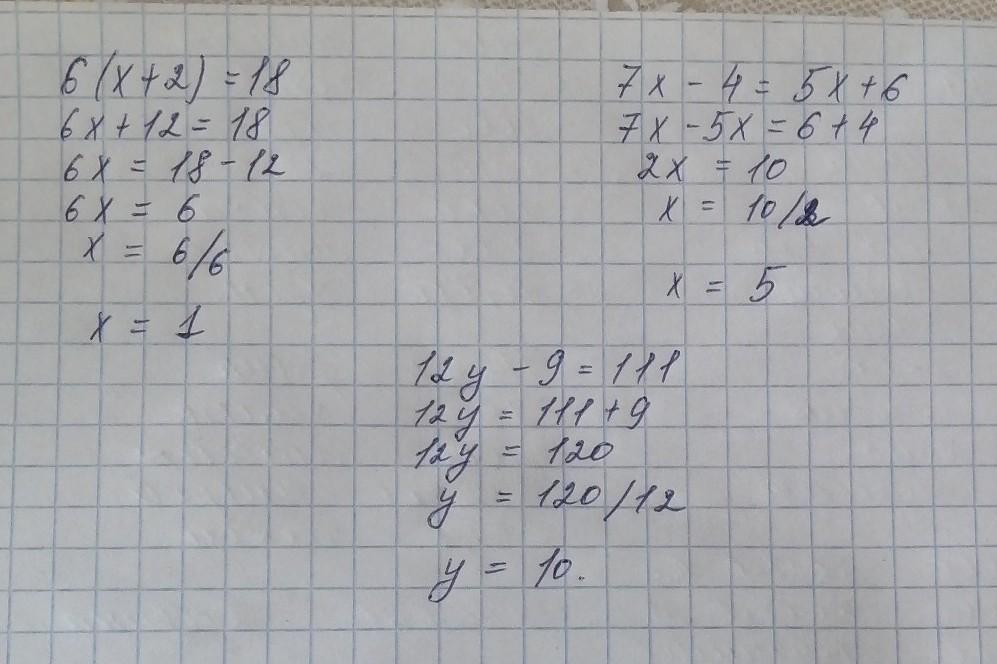 6(x+2)=18
6x+12=18
6x=18-12
6x=6
x=6/6
x=1
7x-4=5x+6
7x-5x=6+4
2x=10
x=10/2
x=5
12y-9=111
12y=111+9
12y=120
y=120/12
y=10.